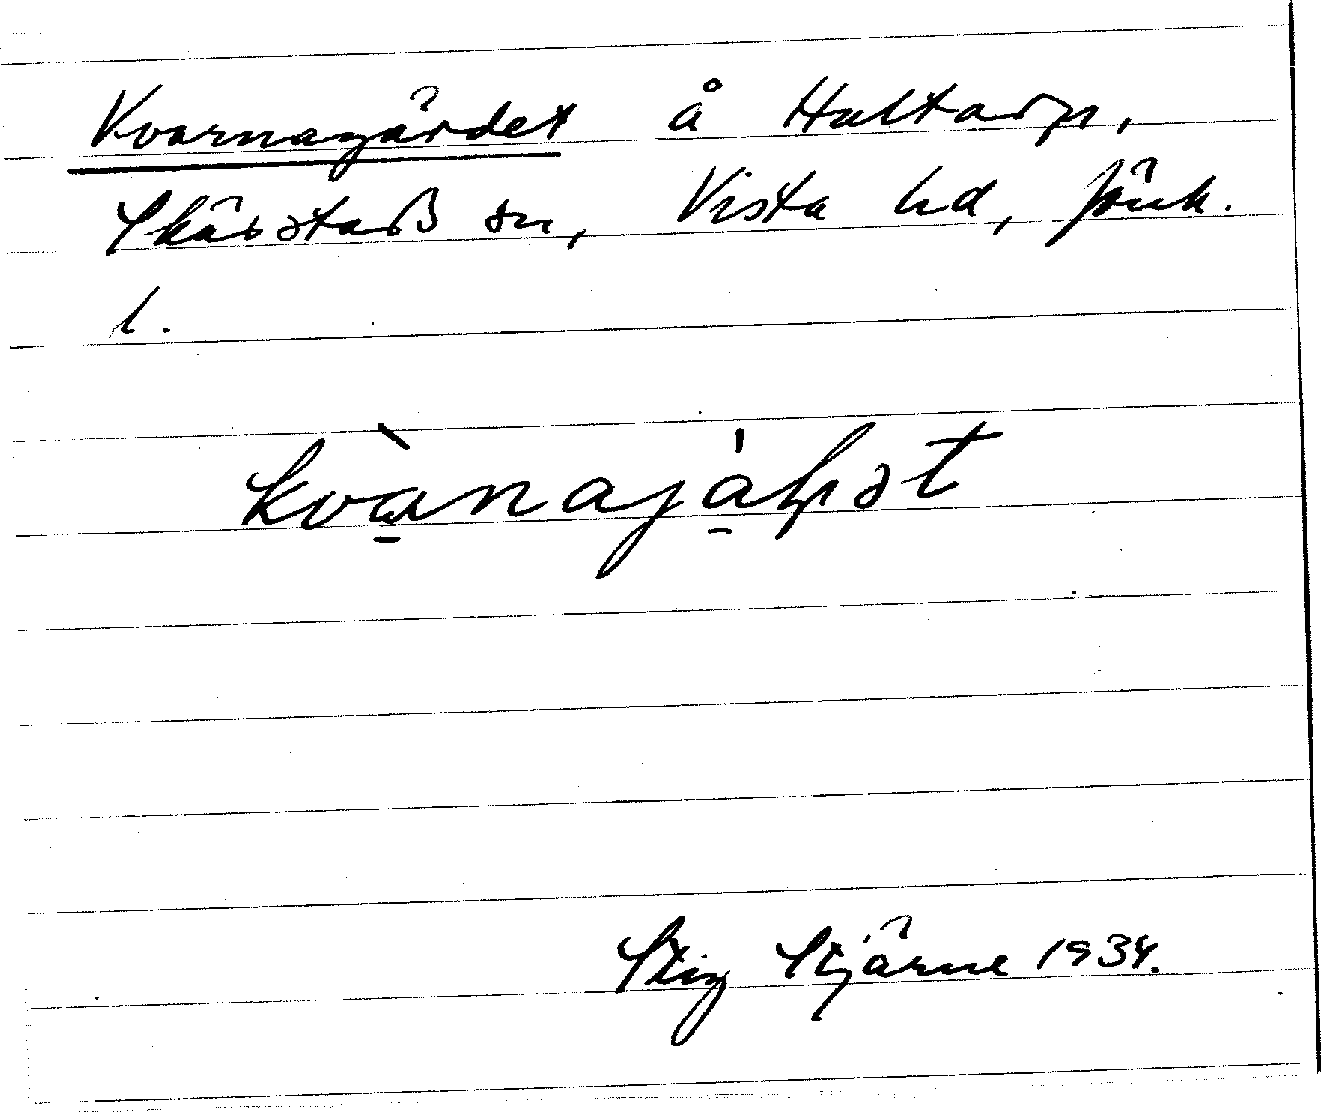 Kvarnagärdet å Hultarp,
Skärstads sn, Vista hd, Jönk.
l.
kvànajáḥət
Stig Stjärne 1934.